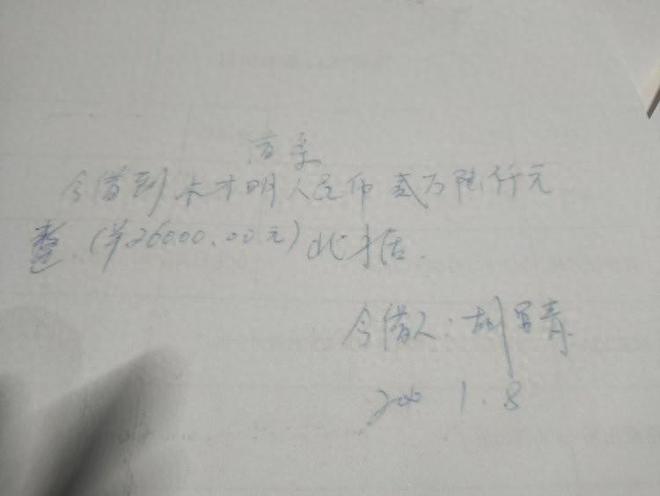 借条
今借到朱才明人民币贰万陆仟元
整(¥26000.00元)此据.
今借人:胡青
1.8